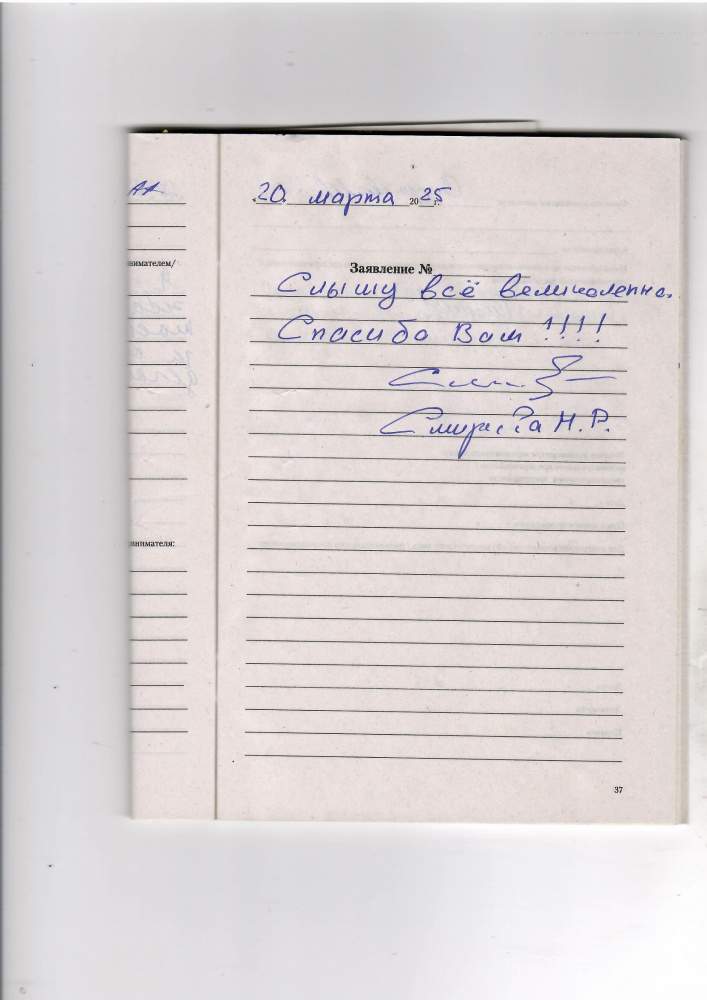 20. марта 2025 г.
нимателем/
Заявление №
Слышу всё великолепно.
Спасибо Вам !!!!
Н. Р.
нимателя:
37